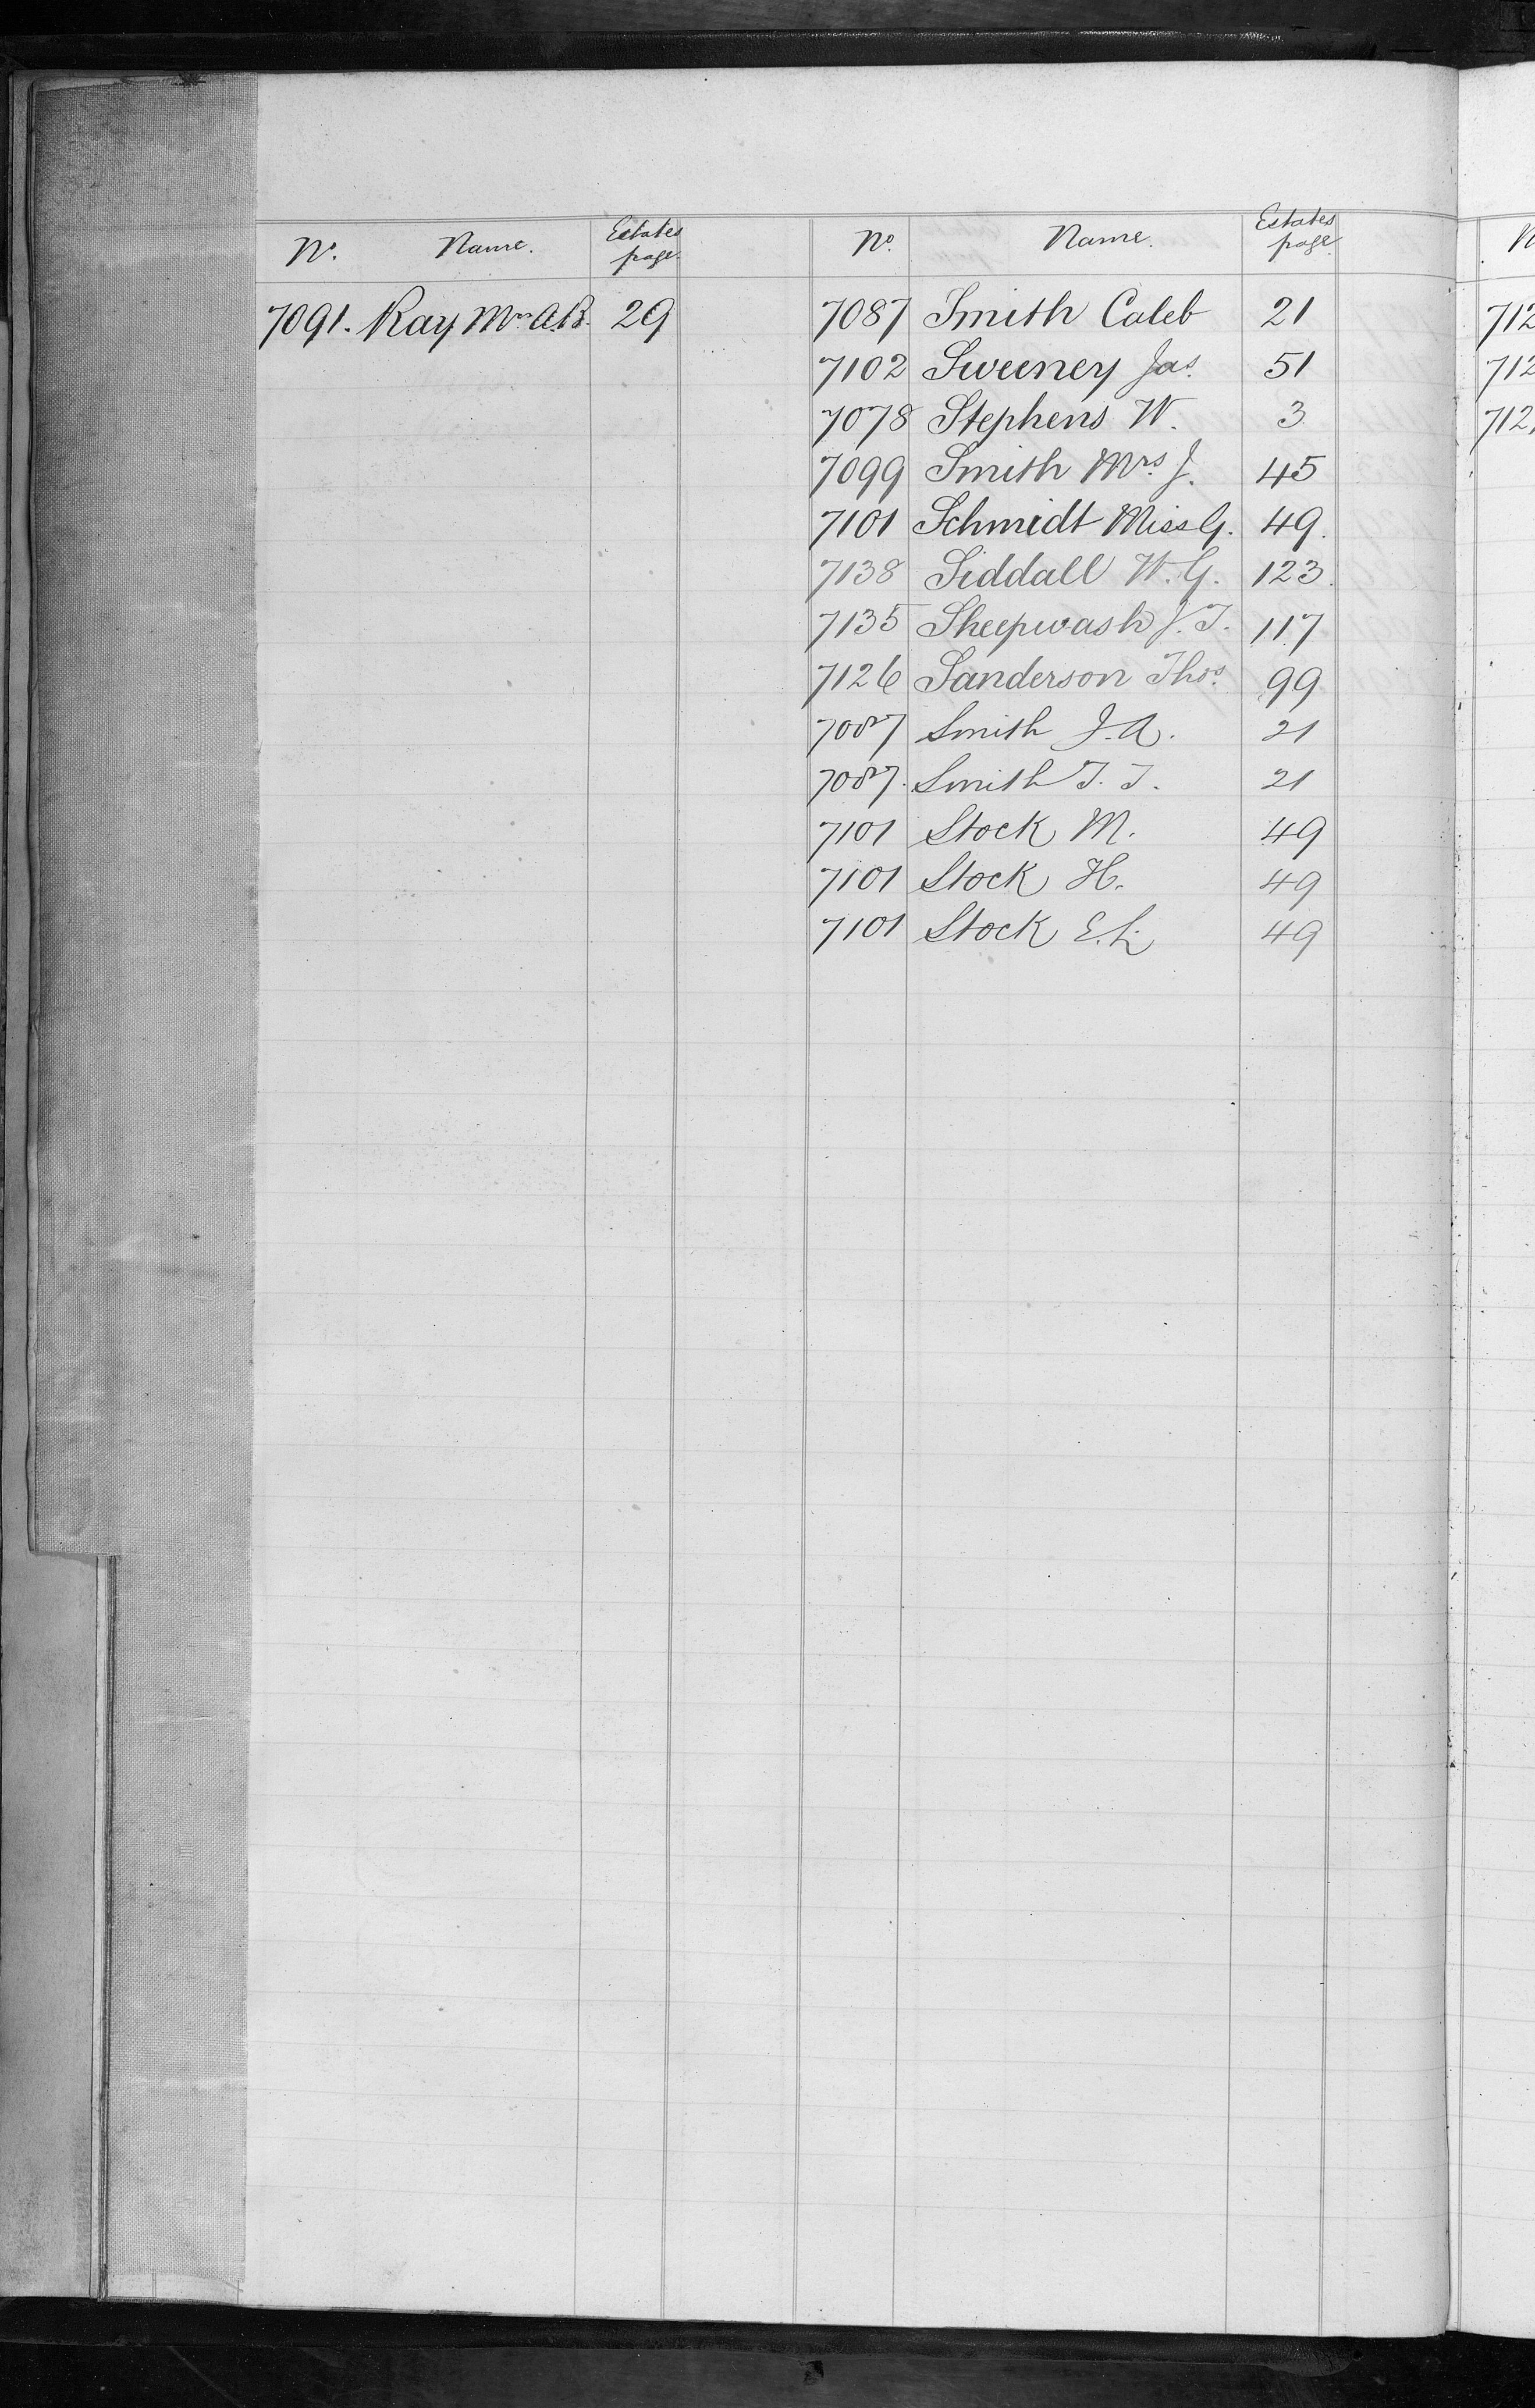 No. Name. Estates page.
7091. Ray Mrs A.B. 29
No. Name. Estates page
7087 Smith Caleb 21
7102 Sweeney Jas. 51
7078 Stephens W. 3
7099 Smith Mrs J. 45
7101 Schmidt Miss G. 49.
7138 Siddall W. G. 123.
7135 Sheepwash J. T. 117
7126 Sanderson Thos. 99
7087 Smith J. A. 21
7087. Smith T. T. 21
7101 Stock M. 49
7101 Stock H. 49
7101 Stock E. L. 49
N
712
712
712